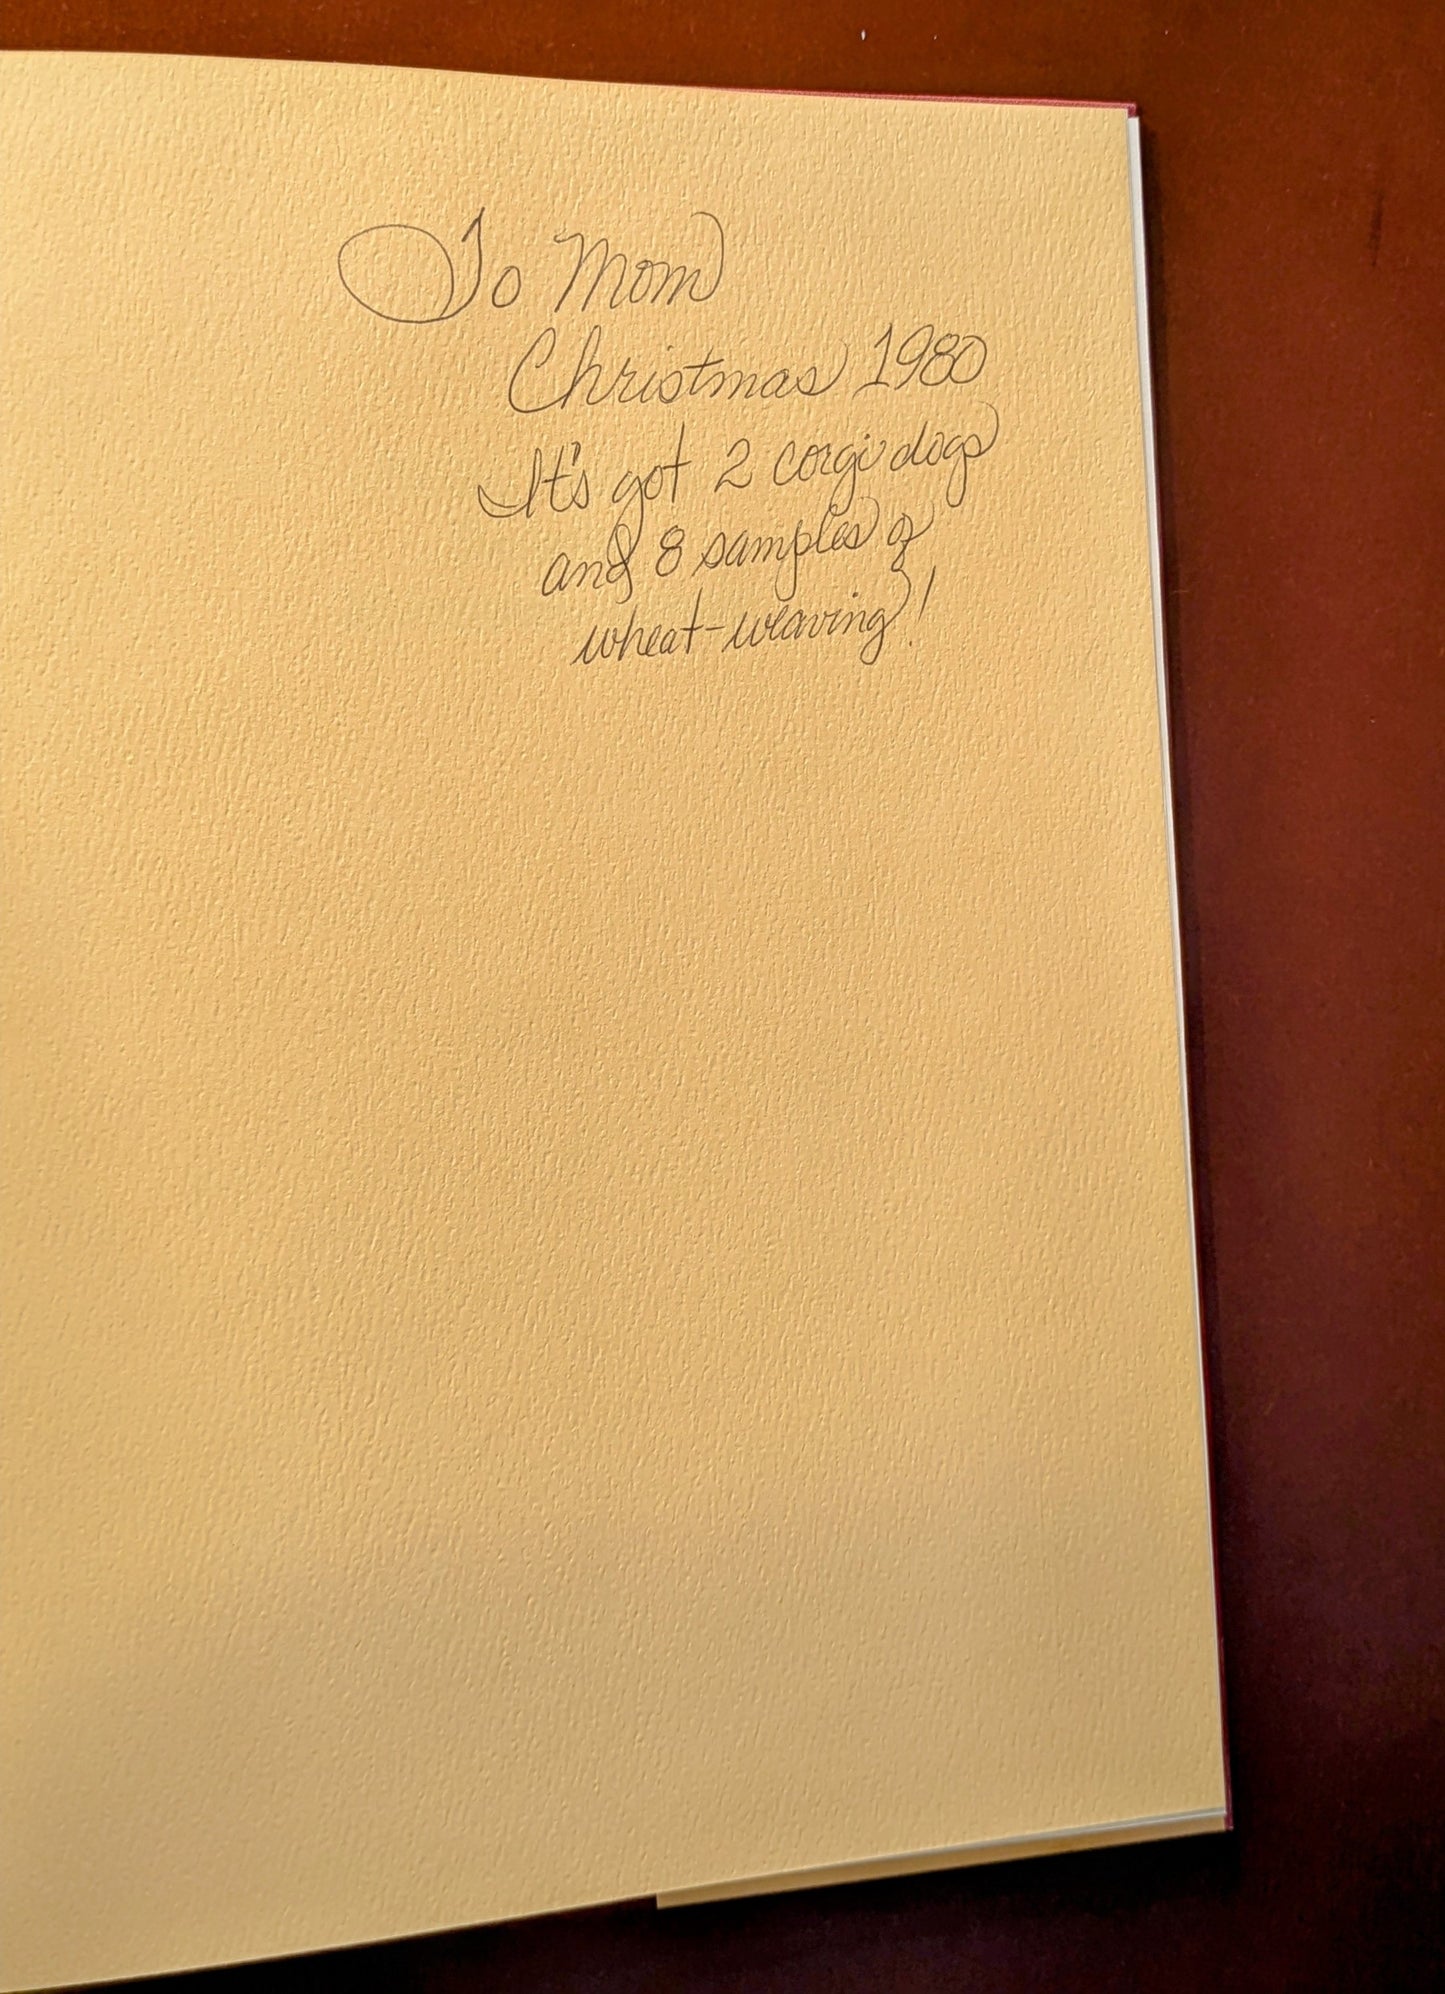 To Mom
Christmas 1980
It's got 2 corgi dogs
and 8 samples of
wheat-weaving!